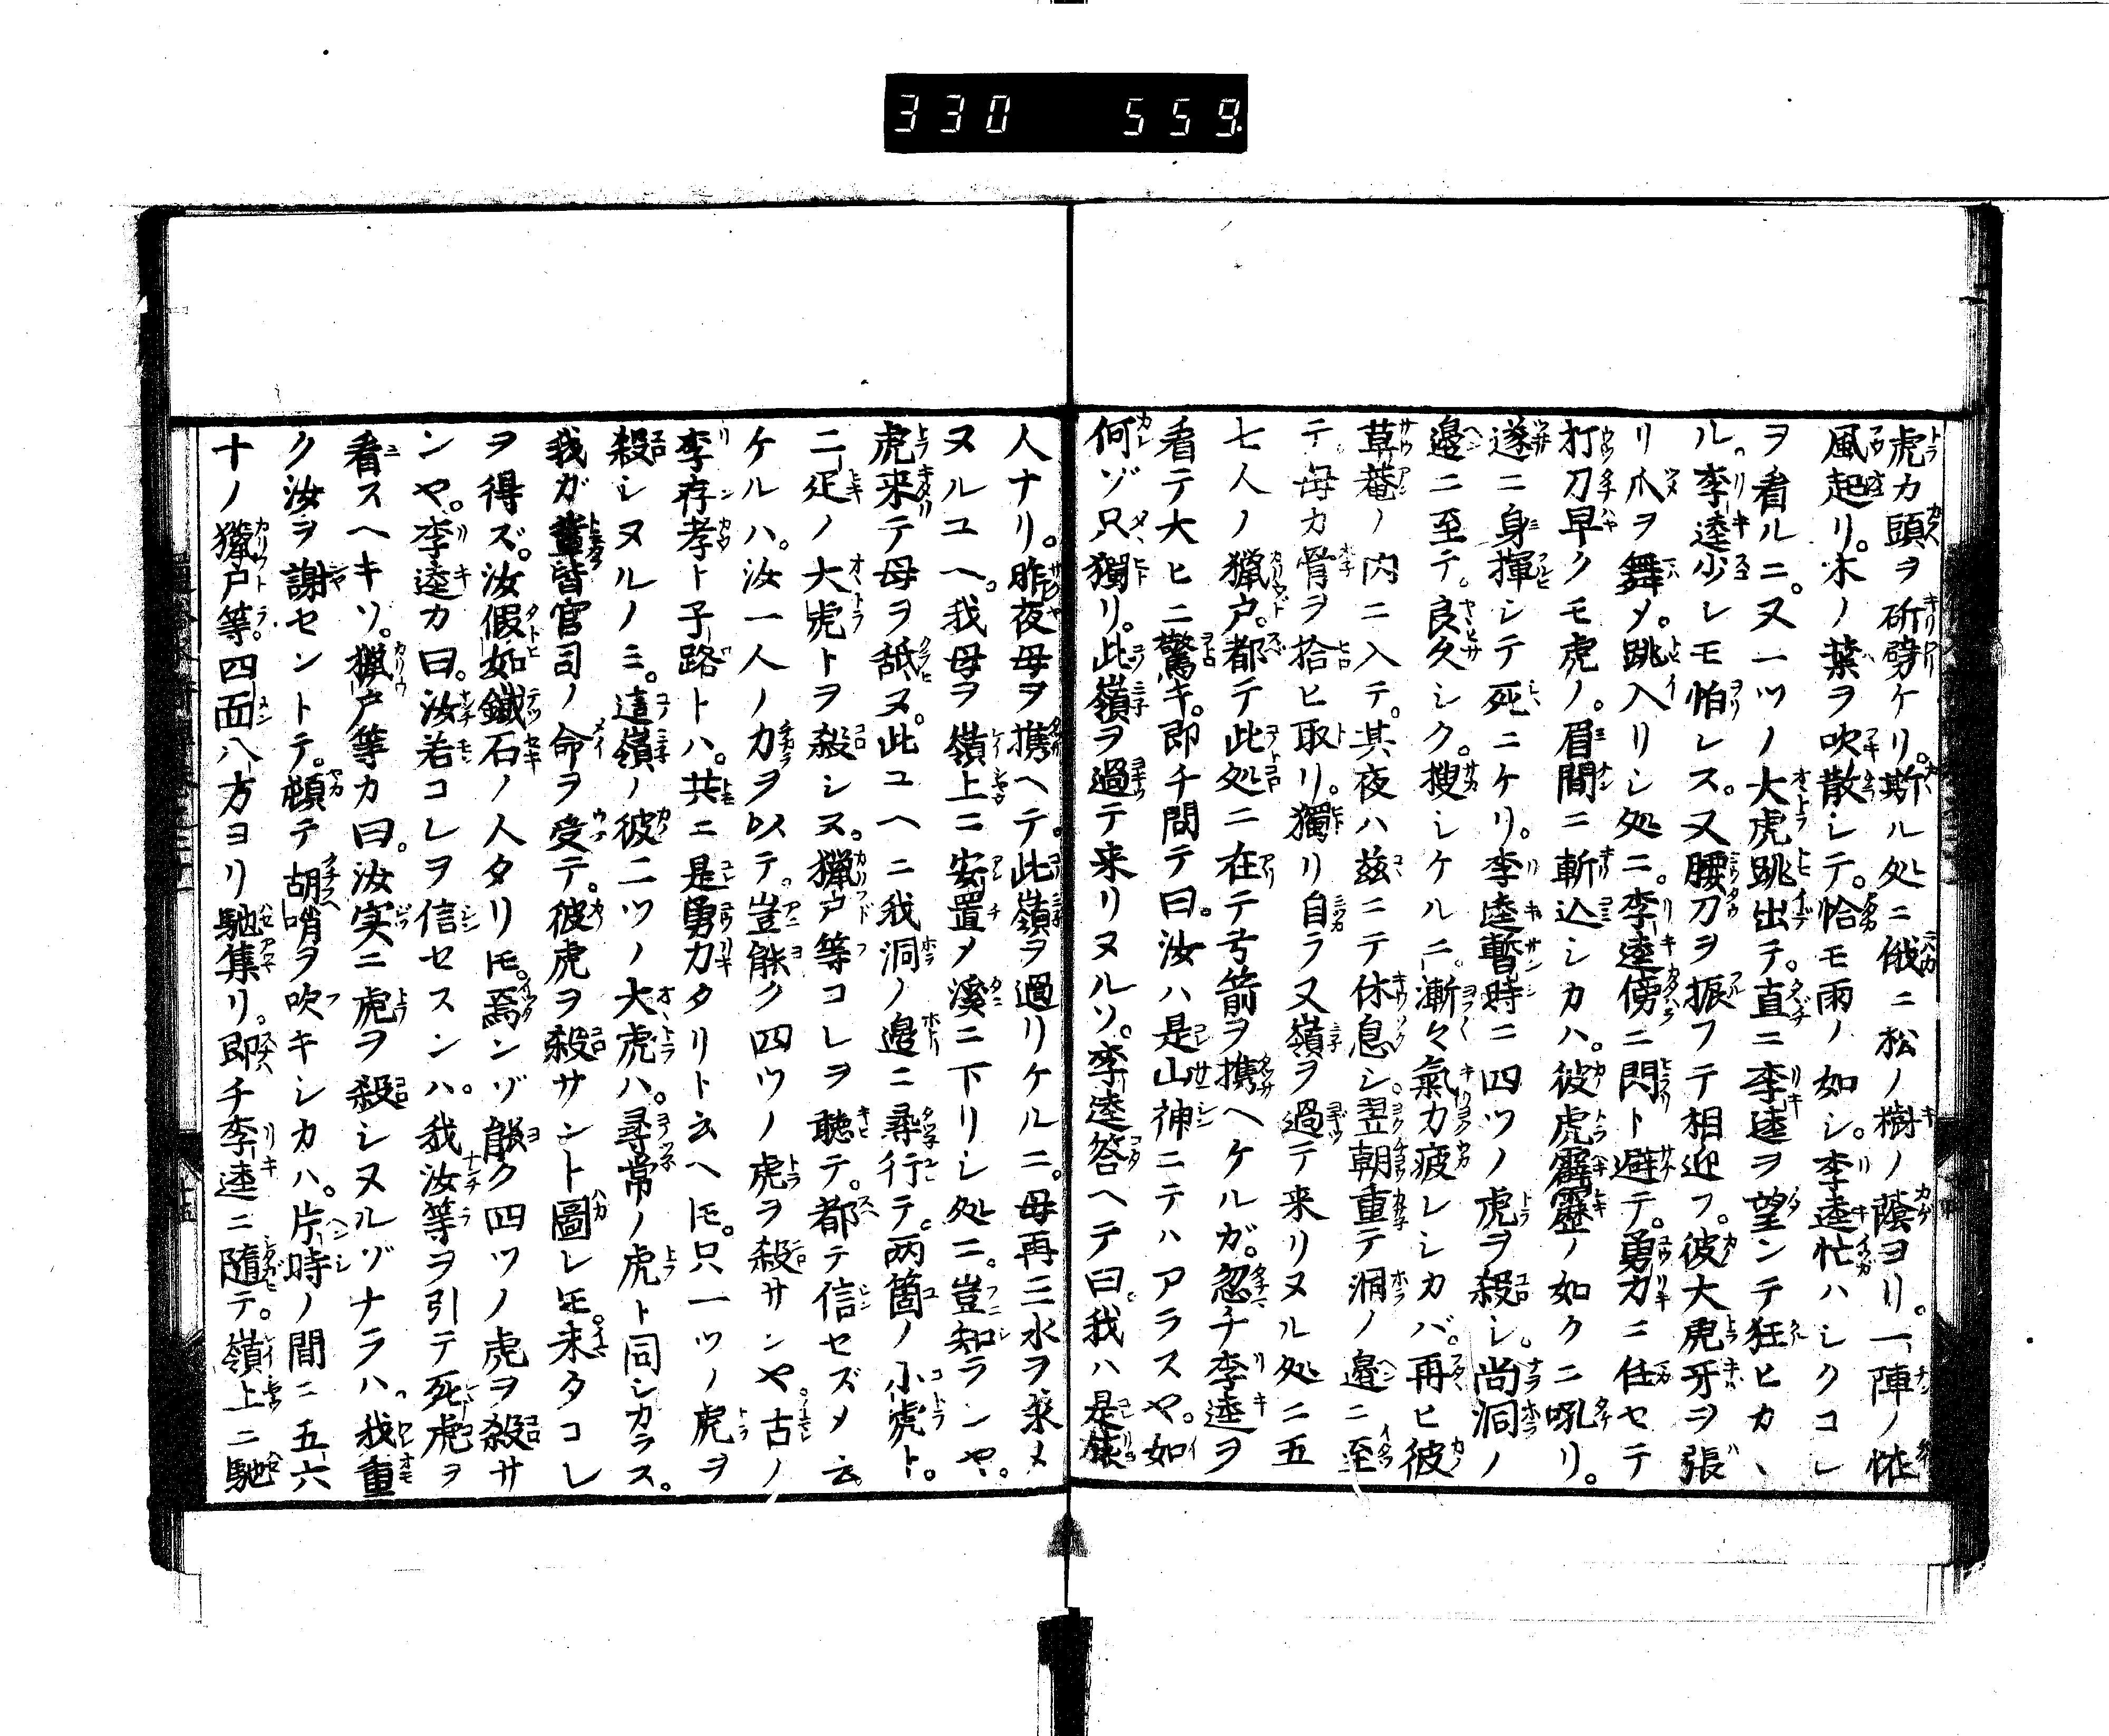 330 559.
虎カ頭ヲ斫劈ケリ。斯ル処ニ俄ニ松ノ樹ノ蔭ヨリ。一陣ノ怪
風起リ。木ノ葉ヲ吹散シテ。恰モ雨ノ如シ。李逵忙ハシクコレ
ヲ看ルニ。又一ツノ大虎跳出テ。直ニ李逵ヲ望ンテ狂ヒカヽ
ル。李逵少シモ怕レス。又腰刀ヲ振フテ相迎フ。彼大虎牙ヲ張
リ爪ヲ舞メ。跳入リシ処ニ。李逵傍ニ閃ト避テ。勇力ニ任セテ
打刀早クモ虎ノ。眉間ニ斬込シカハ。彼虎霹靂ノ如クニ吼リ。
遂ニ身揮シテ死ニケリ。李逵暫時ニ四ツノ虎ヲ殺シ。尚洞ノ
邉ニ至テ。良久シク。搜シケルニ。漸々氣力疲レシカバ。再ヒ彼
草菴ノ内ニ入テ。其夜ハ茲ニテ休息シ。翌朝重テ洞ノ邉ニ至
テ母カ骨ヲ拾ヒ取リ。獨リ自ラ又嶺ヲ過テ来リヌル処ニ五
七人ノ獵户。都テ此処ニ在テ弓箭ヲ携ヘケルガ。忽チ李逵ヲ
看テ大ヒニ驚キ。即チ問テ曰。汝ハ是山神ニテハアラスヤ。如
何ゾ只獨リ。此嶺ヲ過テ来リヌルソ。李逵答ヘテ曰。我ハ是旅
人ナリ。昨夜母ヲ携ヘテ。此嶺ヲ過リケルニ。母再三水ヲ求メ
ヌルユヘ。我母ヲ嶺上ニ安置メ溪ニ下リシ処ニ。豈知ランヤ。
虎来テ母ヲ舐ヌ。此ユヘニ我洞ノ邉ニ尋行テ。両箇ノ小虎ト。
二疋ノ大虎トヲ殺シヌ。獵户等コレヲ聴テ。都テ信セズメ云
ケルハ。汝一人ノ力ヲ以テ。豈能ク四ツノ虎ヲ殺サンヤ。古ノ
李存孝ト子路トハ。共ニ是勇力タリト云ヘ𪜈。只一ツノ虎ヲ
殺シヌルノミ。這嶺ノ彼二ツノ大虎ハ。尋常ノ虎ト同シカラス。
我ガ輩皆官司ノ命ヲ受テ。彼虎ヲ殺サント圖レ𪜈。未タコレ
ヲ得ズ。汝假如鐵石ノ人タリ𪜈。焉ンゾ能ク四ツノ虎ヲ殺サ
ンヤ。李逵カ曰。汝若コレヲ信セスンハ。我汝等ヲ引テ死虎ヲ
看スヘキソ。獵户等カ曰。汝実ニ虎ヲ殺シヌルゾナラハ。我重
ク汝ヲ謝セントテ。頓テ胡哨ヲ吹キシカハ。片時ノ間ニ五六
十ノ獵户等。四面八方ヨリ馳集リ。即チ李逵ニ隨テ。嶺上ニ馳